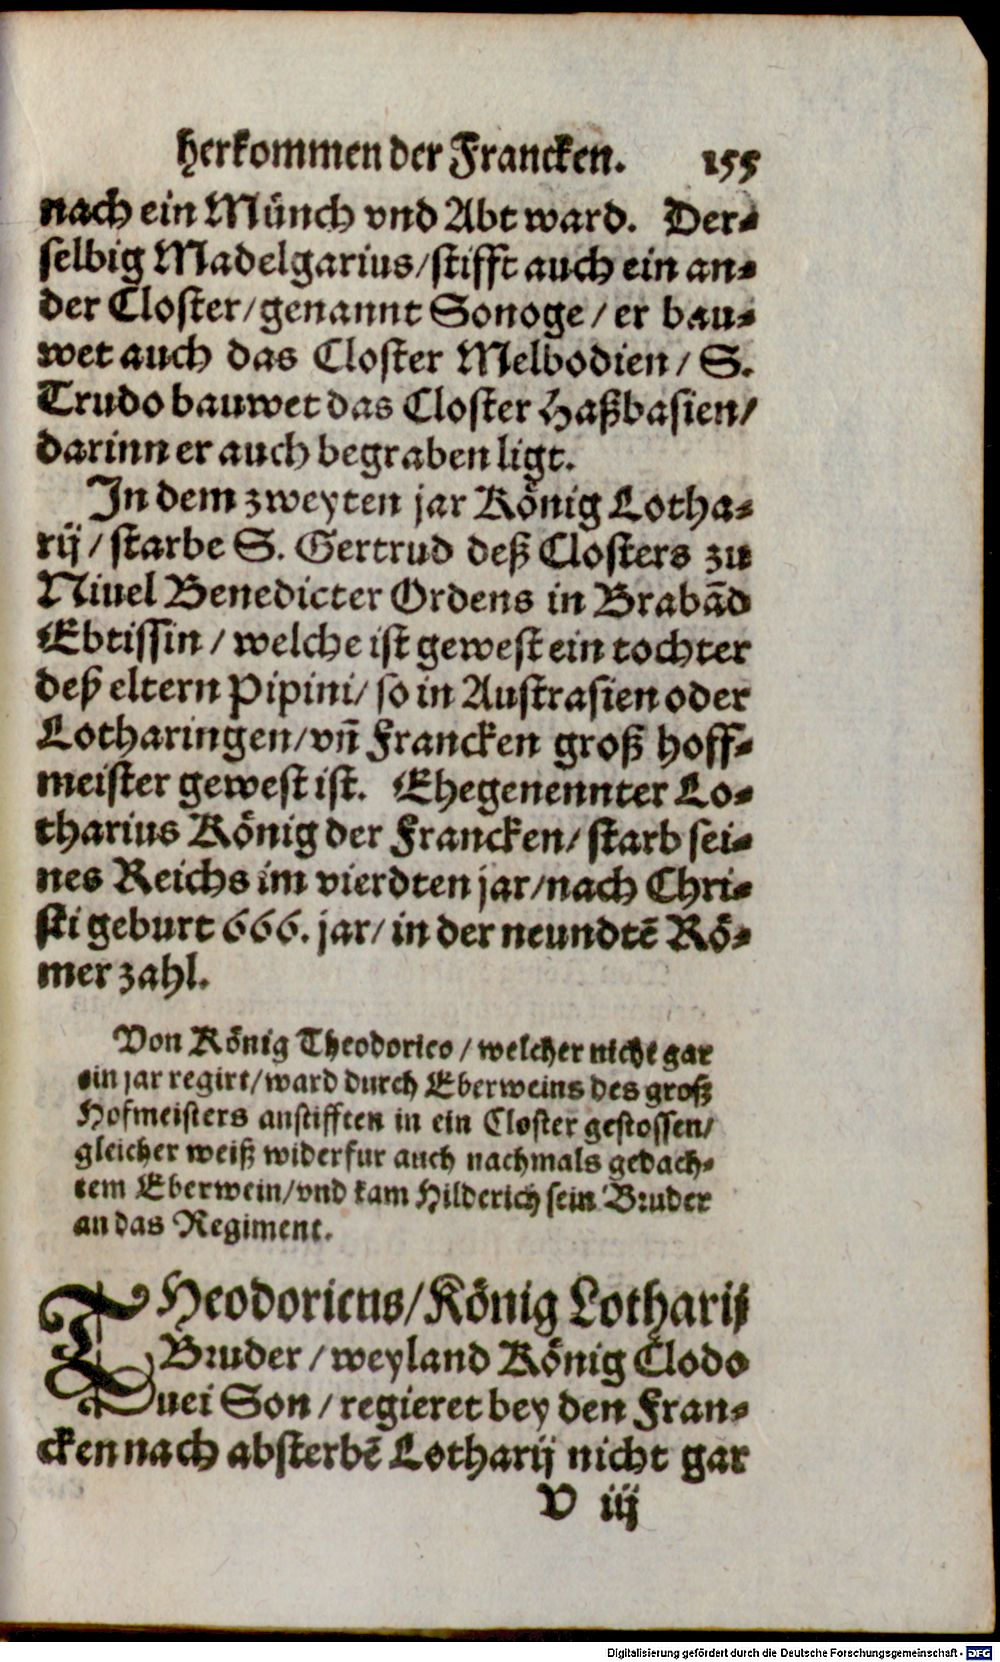 herkommen der Francken. 155
nach ein Münch vnd Abt ward. Der⸗
selbig Madelgarius/stifft auch ein an⸗
der Closter/genannt Sonoge/er bau⸗
wet auch das Closter Melbodien/S.
Trudo bauwet das Closter Haßbasien/
darinn er auch begraben ligt.
In dem zweyten jar König Lotha⸗
rij/starbe S. Gertrud deß Closters zu
Niuel Benedicter Ordens in Brabãd
Ebtissin/welche ist gewest ein tochter
deß eltern Pipini/so in Austrasien oder
Lotharingen/vñ Francken groß hoff⸗
meister gewest ist. Ehegenennter Lo⸗
tharius König der Francken/starb sei⸗
nes Reichs im vierdten jar/nach Chri⸗
sti geburt 666. jar/in der neundtẽ Rö⸗
mer zahl.
Von König Theodorico/welcher nicht gar
ein jar regirt/ward durch Eberweins des groß
Hofmeisters anstifften in ein Closter gestossen/
gleicher weiß widerfur auch nachmals gedach⸗
tem Eberwein/vnd kam Hilderich sein Bruder
an das Regiment.
THeodoricus/König Lotharij
Bruder/weyland König Clodo
uei Son/regieret bey den Fran⸗
cken nach absterbẽ Lotharij nicht gar
V iij
Digitalisierung gefördert durch die Deutsche Forschungsgemeinschaft - DFG